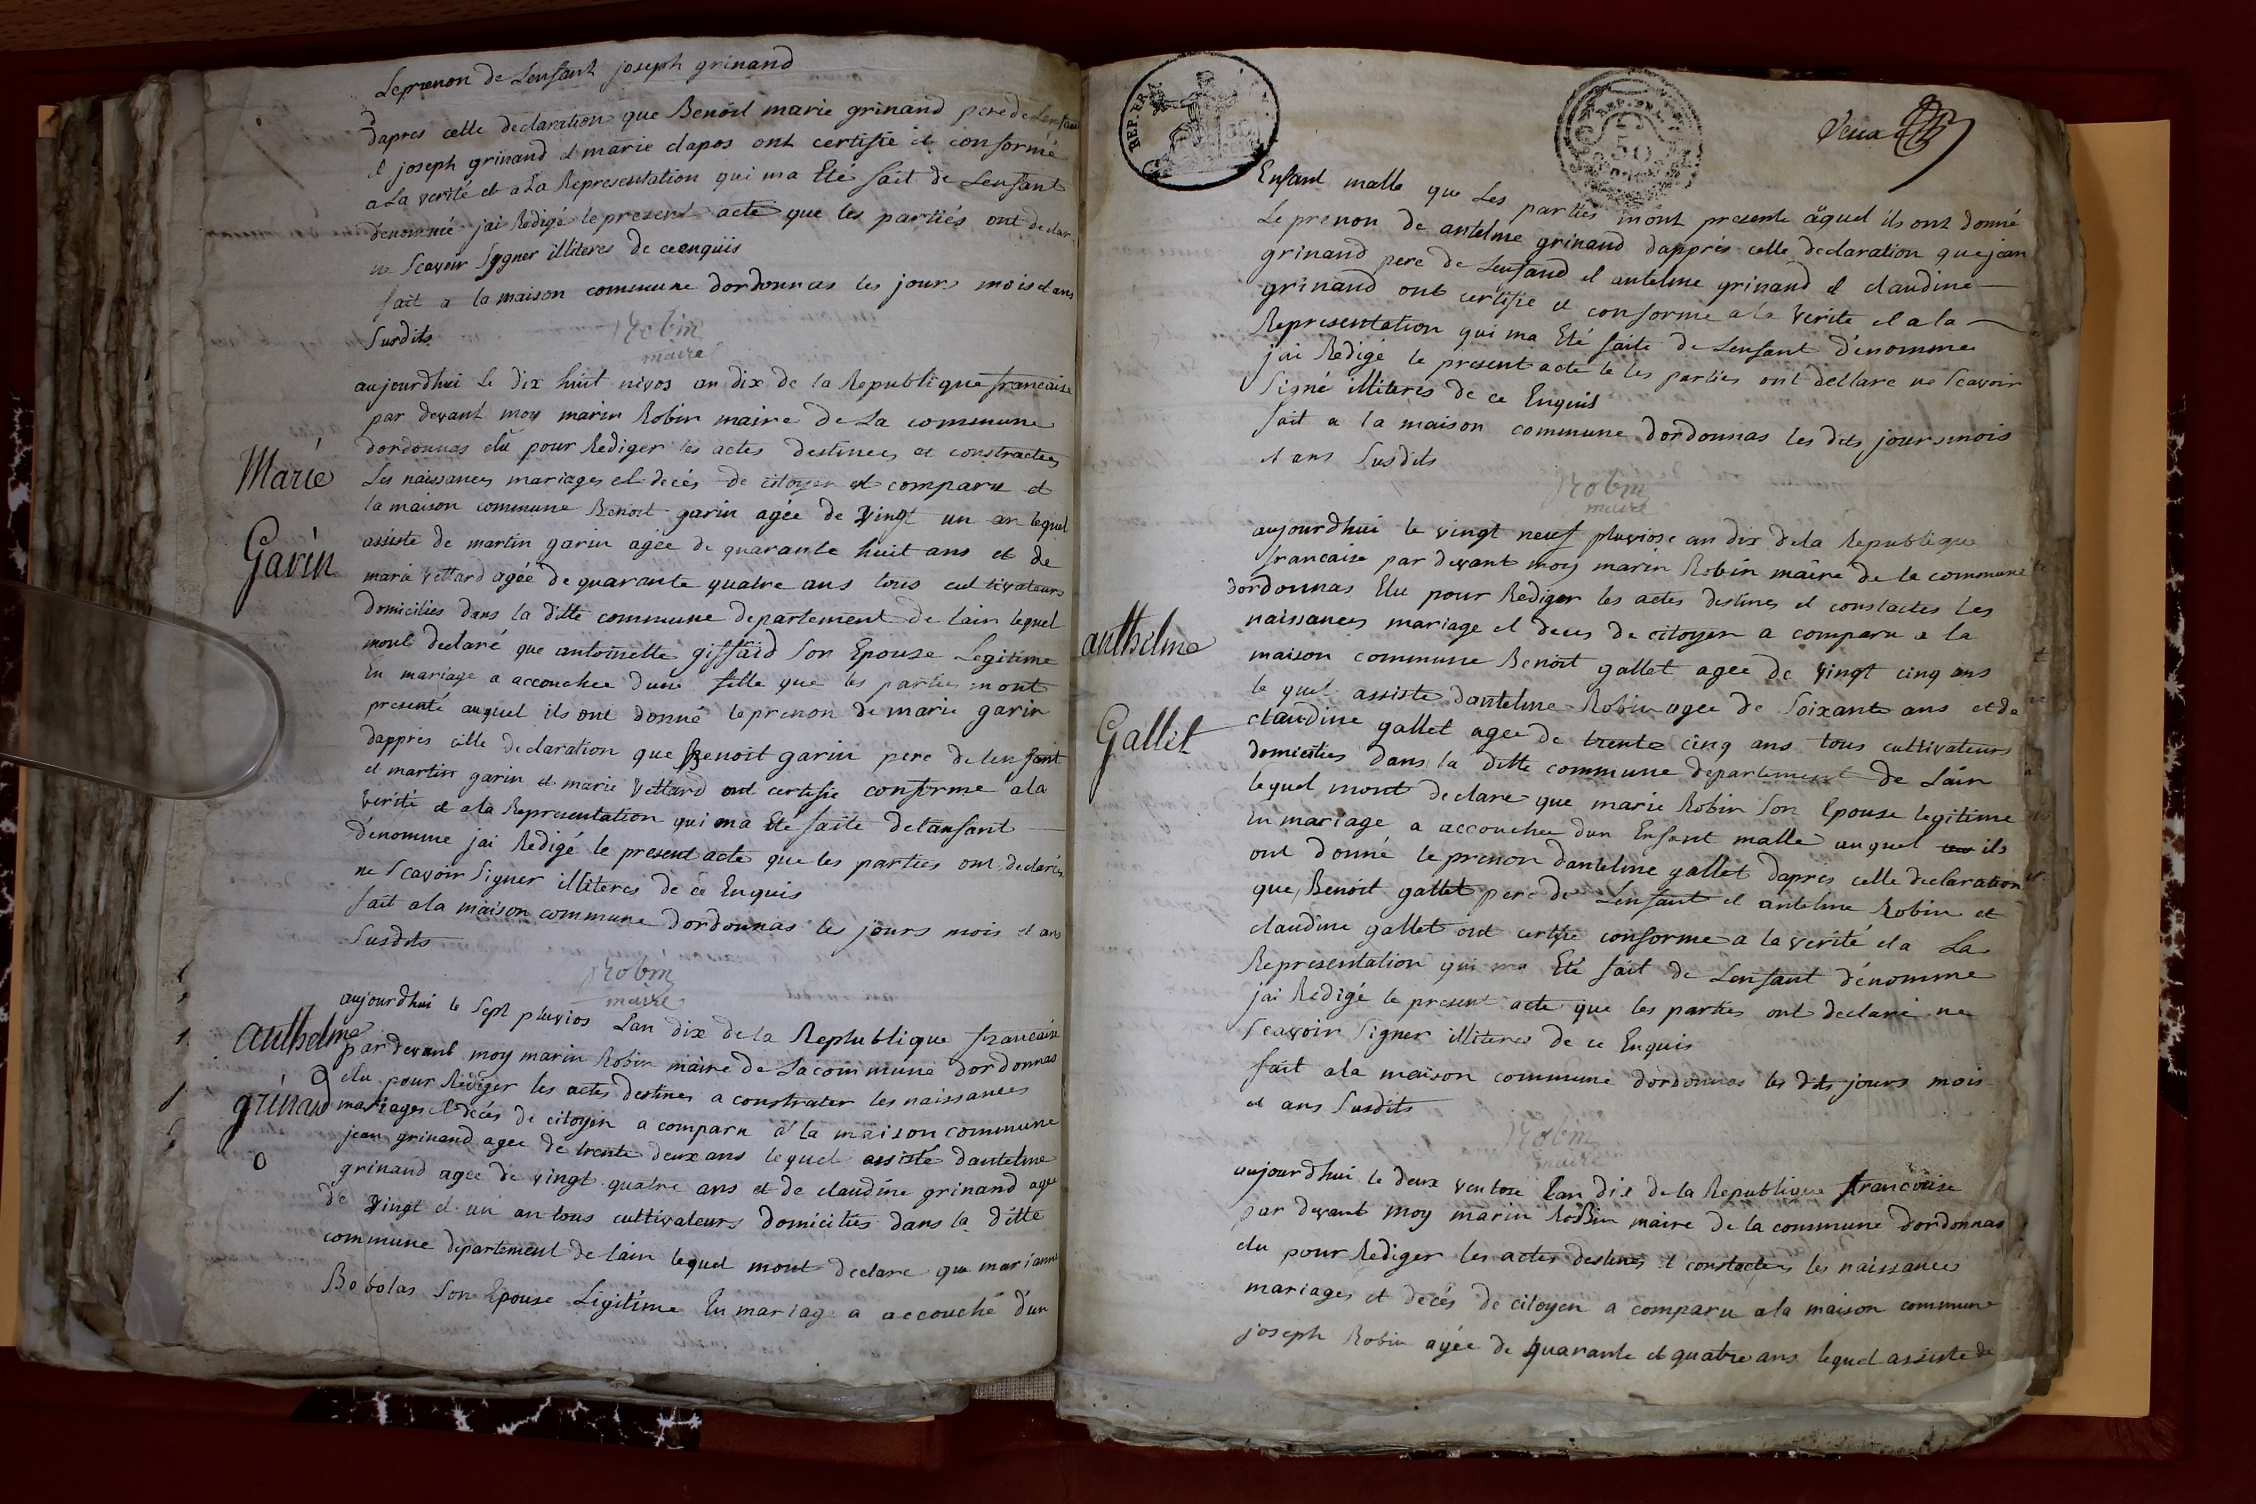 Leprenon de Lensant joseph grinand
dapres celle declaration que Benoit marie grinand pere de Lensan
et joseph grinand et marie clapos ont certifie et conformé
a La verité et a La Representation qui ma Eté fait de Lensant
dénommé jai Redigé le present acte que les partiés ont declar
ne Scavoir Sygner illiteres de ce enquiis
fait a la maison commune dordonnas les jours mois et ans
Susdits
Robin
maire
Marie
Garin
aujourdhui le dix huit nivos an dix de la Republique francaise
par devant moy marin Robin maire de La commune
dordonnas elû pour Rediger les actes destinees et constractes
Les naissances mariages et decés de citoyen et comparu et
la maison commune Benoit garin agée de vingt un an lequel
assiste de martin garin agée de quarante huit ans et de
marie vettard agée de quarante quatre ans tous cultivateurs
domiciliés dans la ditte commune departement de lain lequel
mont declaré que antoinette giffaid Son Epouse Legitime
En mariage a accouchee dune fille que les parties mont
presenté auquel ils ont donné leprenon de marie garin
dappres cille declaration que Benoit garin pere de lensant
et martin garin et marie Vettard ont certifie conforme a la
Verité et a la Representation qui ma Eté faite de lansant
dénomme jai Redigé le present acte que les parties ont declarés
ne Scavoir Signer illiteres de ce Enquis
fait a la maison commune dordonnas les jours mois et an
Susdits
Robin
maire
anthelme
grinand
aujourdhui le Sept pluvios Lan dix de la Replublique francaise
pardevant moy marin Robin maire de La commune dordonnas
elu pour Rediger les actes destines a constrater les naissances
mariages et decés de citoyen a comparu a la maison commune
jean grinand agee de trente deux ans lequel assisté dantelme
grinand agee de vingt quatre ans et de claudine grinand agee
de vingt et un an tous cultivateurs domiciliés dans la ditte
commune departement de lain lequel mont declare que marianne
Bobolas Son Epouse Ligitime En mariage a accouché dun
REP. FRA.
REP. FRA.
50
Deux
Ensant malle que Les parties mont presente aquel ils ont donné
Le prenon de antelme grinand dapprés celle declaration que jean
grinand pere de Lensand et antelme grinand et claudine
grinand ont certifie et conforme a la Verite et a la
Representation qui ma Eté faite de Lensant dénomme
jai Redigé le present acte te les parties ont déclare ne Scavoir
Signé illiteres de ce Enquis
fait a la maison commune dordonnas les dits jours mois
et ans Susdits
Robin
maire
anthelme
Gallet
aujourdhui le vingt neuf pluviose an dix dela Republique
francaise par devant moy marin Robin maire de la commune
dordonnas Elu pour Rediger les actes destines et constactes Les
naissances mariage et deces de citoyen a comparu a la
maison commune Benoit gallet agee de vingt cinq ans
le quel assiste dantelme Robin agee de Soixante ans et de
claudine gallet agee de trente cinq ans tous cultivateurs
domicilies dans la ditte commune departement de Lain
lequel mont declare que marie Robin Son Epouse legitime
En mariage a accouchee dun Ensant malle auquel ils
ont donné le prenon dantelme gallet dapres celle declaration
que Benoit gallet pere de Lensant et antelme Robin et
claudine gallet ont certifie conforme a la verité et a La
Representation qui ma Eté fait de Lensant dénomme
jai Redigé le present acte que les parties ont declaré ne
Scavoir Signer illiteres de ce Enquis
fait a la maison commune dordonnas les dits jours mois
et ans Susdits
Robin
maire
aujourdhui le deux ventose Lan dix de la Republique francoise
par devant moy marin Robin maire de la commune dordonnas
elu pour Rediger les actes destines et constacters les naissances
mariages et decés de citoyen a comparu a la maison commune
joseph Robin agée de quarante et quatre ans lequel assiste de